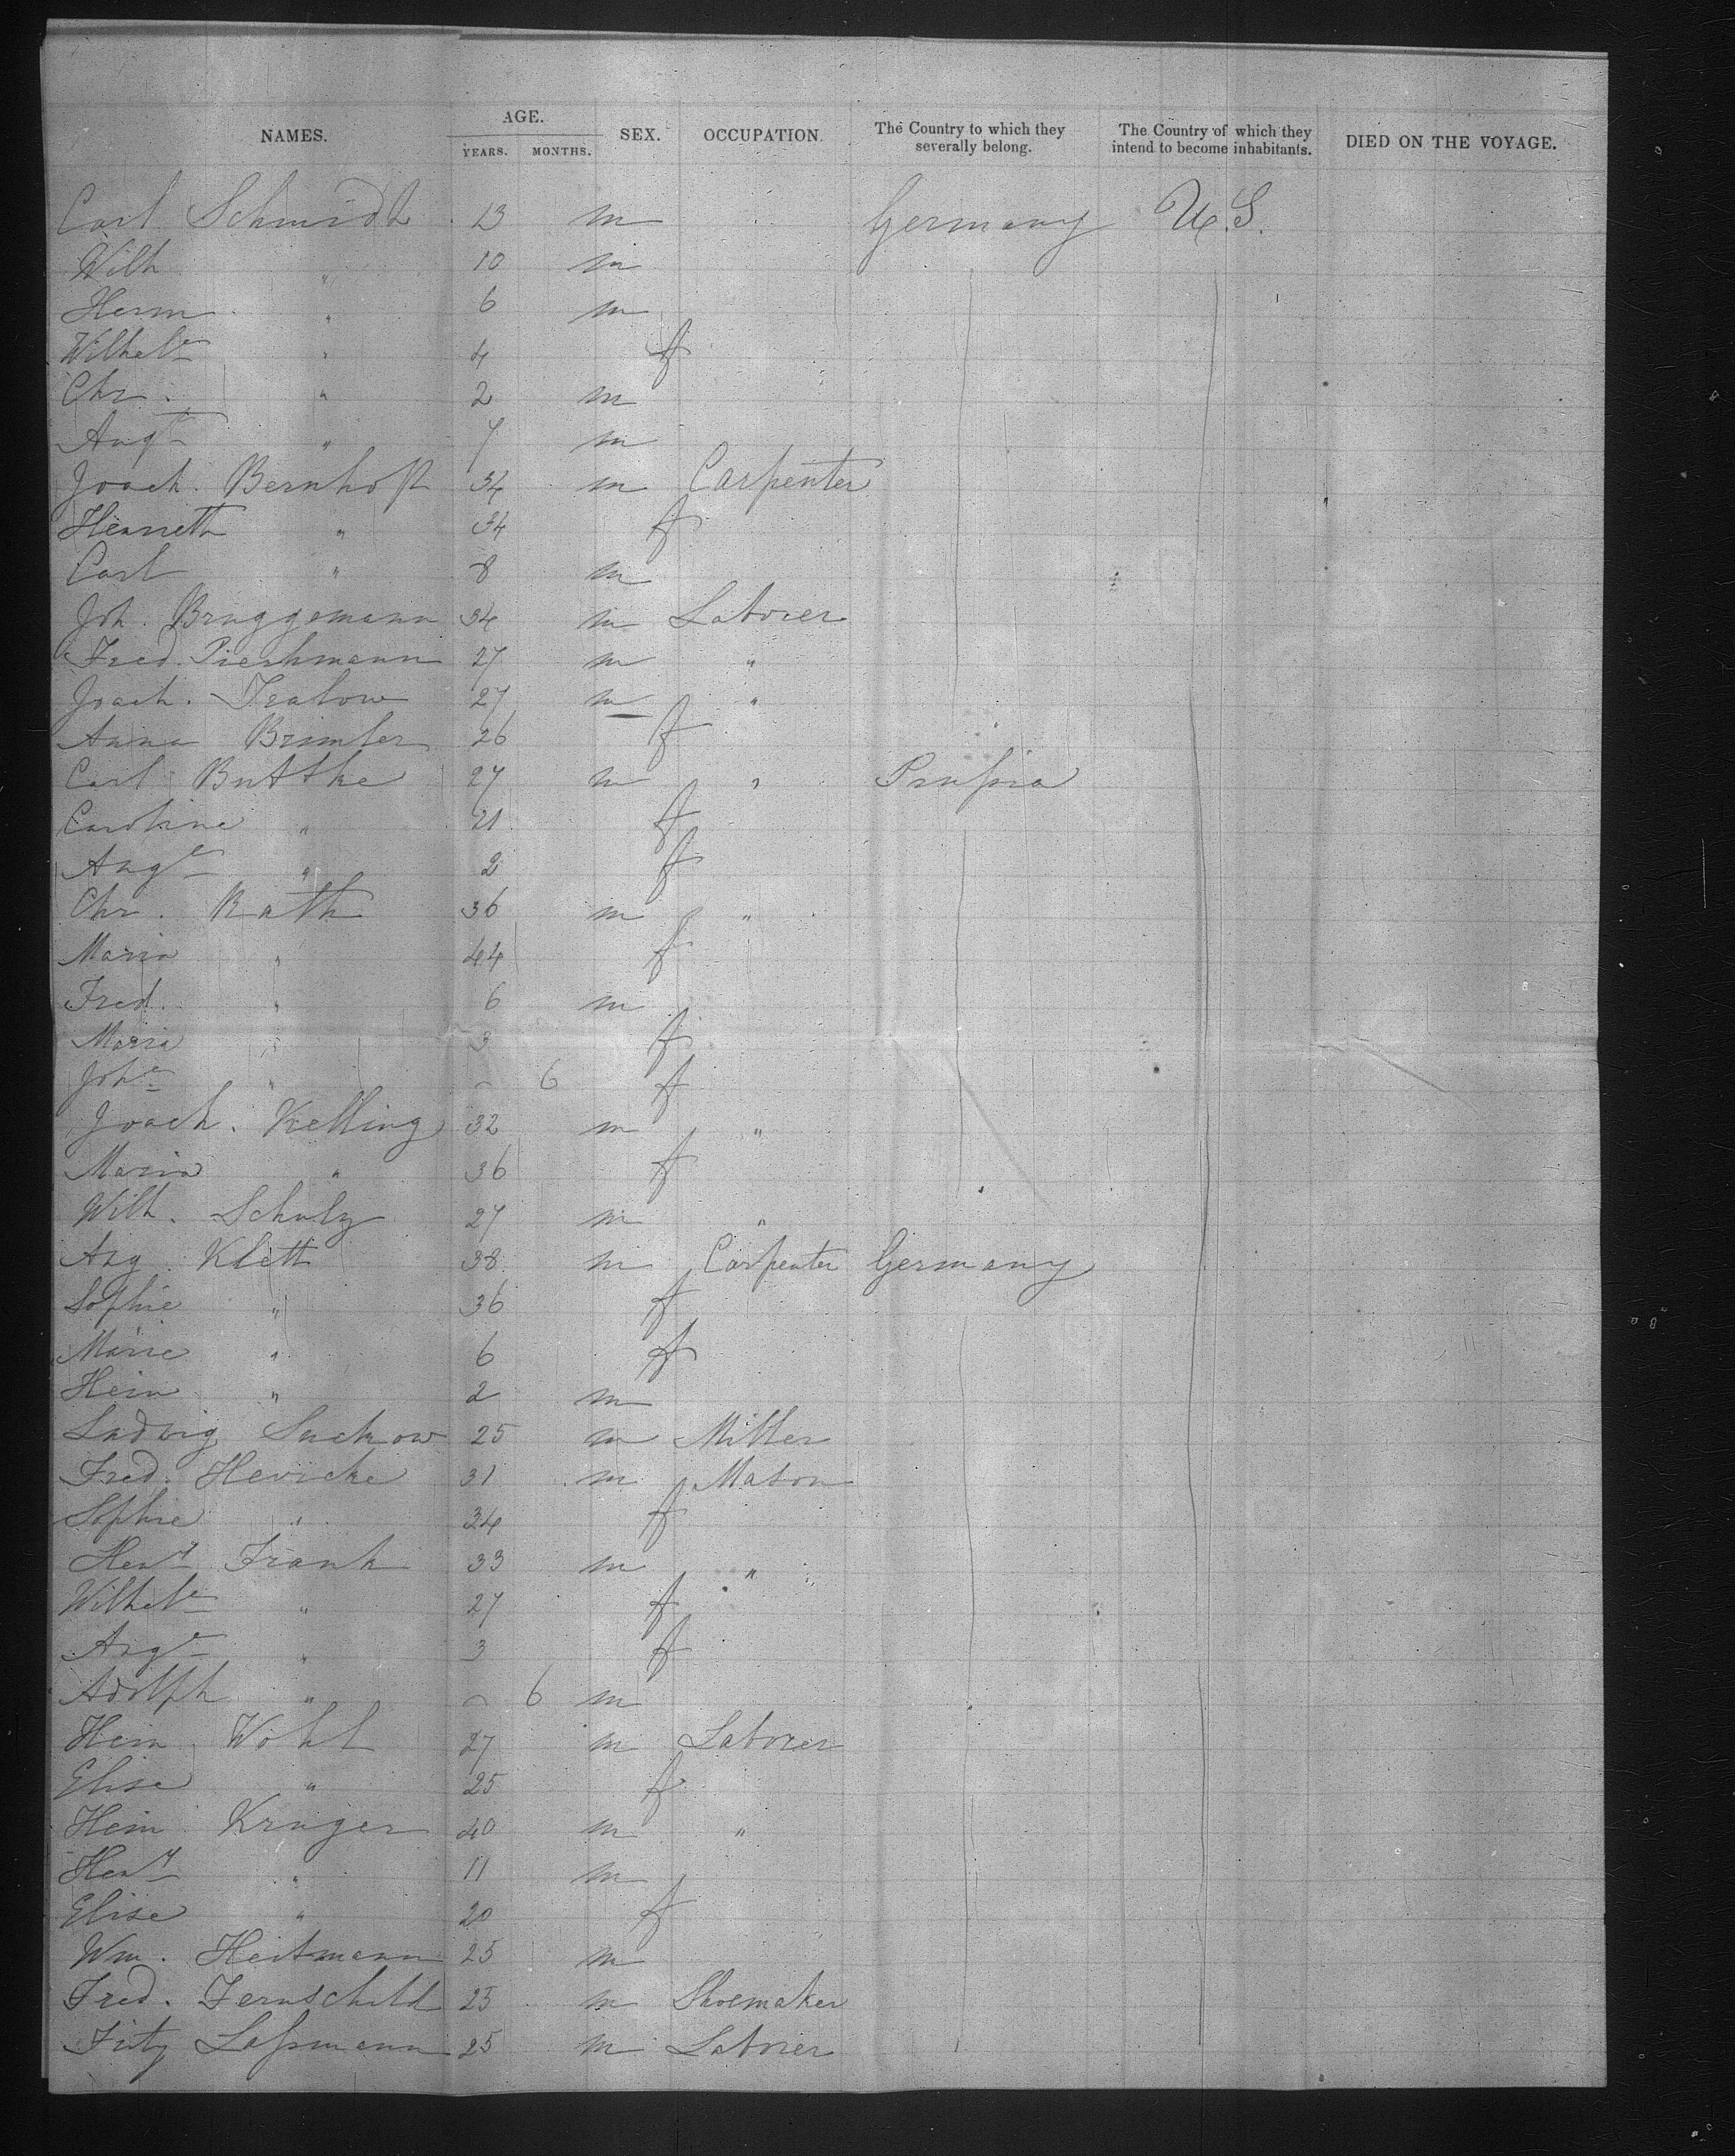 NAMES. AGE. YEARS. MONTHS. SEX. OCCUPATION. The Country to which they severally belong. The Country of which they intend to become inhabitants. DIED ON THE VOYAGE.
Carl Schmidt 13 m Germany U.S.
Wilh " 10 m
Herm " 6 m
Wilhele " 4 f
Chr. " 2 m
Augt " 7 m
Joach. Bernhoft 34 m Carpenter
Henrietta " 34 f
Carl " 8 m
Joh. Bruggemann 34 m Laborer
Fred. 27 m "
Joach. 27 m "
Anna 26 f
Carl Buttke 27 m " Prussia
Caroline " 21 f
Auge " 2 f
Chr. Rath 36 m "
Maria " 44 f
Fred. " 6 m
Maria " 3 f
Johe " - 6 f
Joach. Kelling 32 m "
Maria " 36 f
Wilh. Schulz 27 m "
Aug. Klett 38 m Carpenter Germany
Sophie " 36 f
Marie " 6 f
Hein " 2 m
Ludwig Suckow 25 m Miller
Fred. Hevicke 31 m Mason
Sophie " 34 f
Heny Frank 33 m "
Wilhele " 27 f
Auge " 3 f
Adolph " - 6 m
Hein. Wohl 27 m Laborer
Elise " 25 f
Hein. Kruger 40 m "
Heny " 11 m
Elise " 20 f
Wm. Heitmann 25 m
Fred. Fernschild 25 m Shoemaker
Fritz Lassmann 25 m Laborer